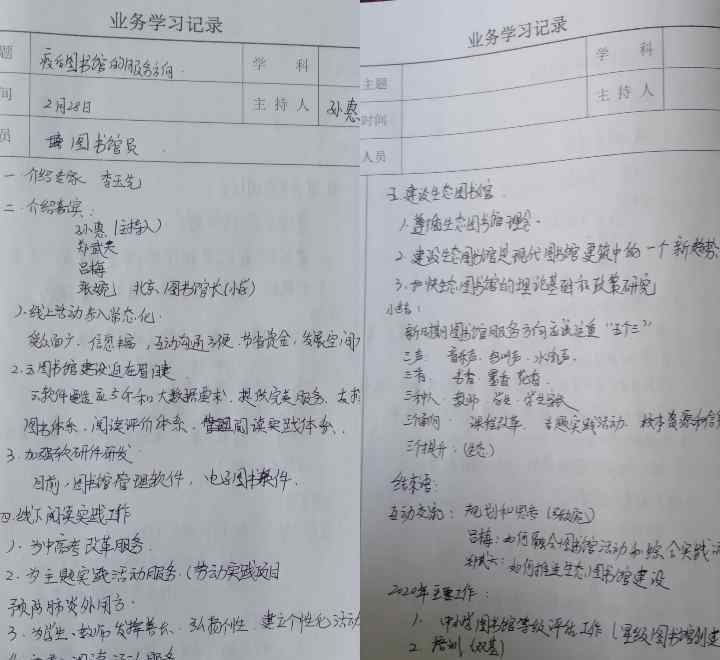 业务学习记录
题 疫后图书馆的服务方向 学 科
间 2月28日 主持人 孙惠
员 图书馆员
一 介绍专家 李玉先
二. 介绍嘉宾:
孙惠 (主持人)
郑武
吕梅
北京 图书馆长(小学)
1. 线上活动步入常态化.
受众面广, 信息, 互动沟通方便. 节省资金, 发展空间
2. 云图书馆建设迫在眉睫
云软件 5个 大数据 提供完美服务.
图书体系、阅读评价体系、 阅读实践体系.
3. 加强软硬件研发
目前, 图书馆管理软件, 电子图书条件.
四. 线下阅读实践工作
1. 为中高考改革服务.
2. 为主题实践活动服务. (劳动实践项目
3. 为学生、教师发挥善长、弘扬个性. 建立个性化活动
业务学习记录
主题 学 科
时间 主持人
人员
五 建设生态图书馆.
1. 遵循生态图书馆理论.
2. 建设生态图书馆是现代图书馆变革中的一个新趋势
3. 加快生态图书馆的理论基础和政策研究
小结:
新时期图书馆服务方向应该注重 "五个三"
三声 音乐声. 水流声.
三香 书香. 墨香 花香.
三种人 教师. 学生. 学生家长
三个面向: 课程改革. 主题实践活动.
三个提升: (生态)
结束语:
互动交流: 规划和思考
吕梅: 如何融合图书馆活动和综合实践
如何推进生态图书馆建设
2020年主要工作:
1. 中小学图书馆等级评估工作 (星级图书馆创建
2. 培训